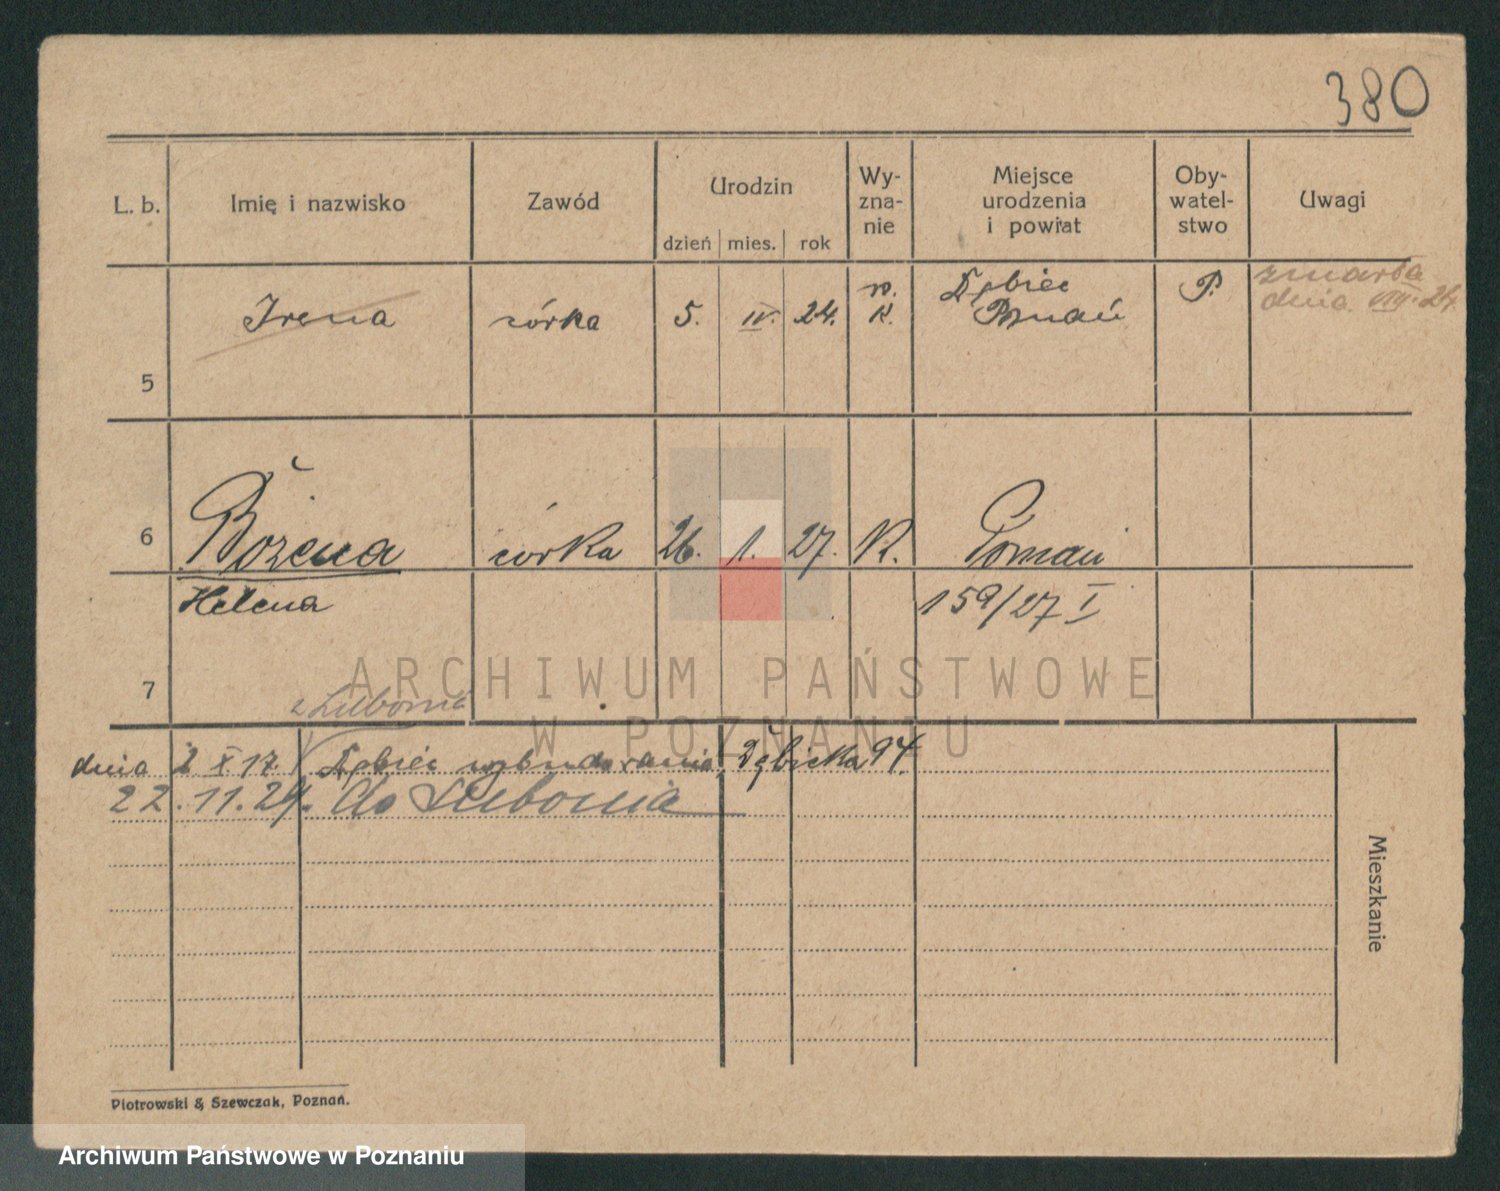 380
L. b. Imię i nazwisko Zawód Urodzin dzień mies. rok Wy-znanie Miejsce urodzenia i powiat Oby-watel-stwo Uwagi
zmarła
dnia VIII. 24.
5 Irena córka 5. IV. 24. r. K. Dębiec P.
Poznań
6 Bożena córka 26. 1. 27. K. Poznań
Helena 159/27 I
7
z Lubonia
dnia 2 X 17 Dębiec wybudowania, Dębicka 94.
22.11.24. do Lubonia
Mieszkanie
Piotrowski & Szewczak, Poznań.
ARCHIWUM PAŃSTWOWE
W POZNANIU
Archiwum Państwowe w Poznaniu